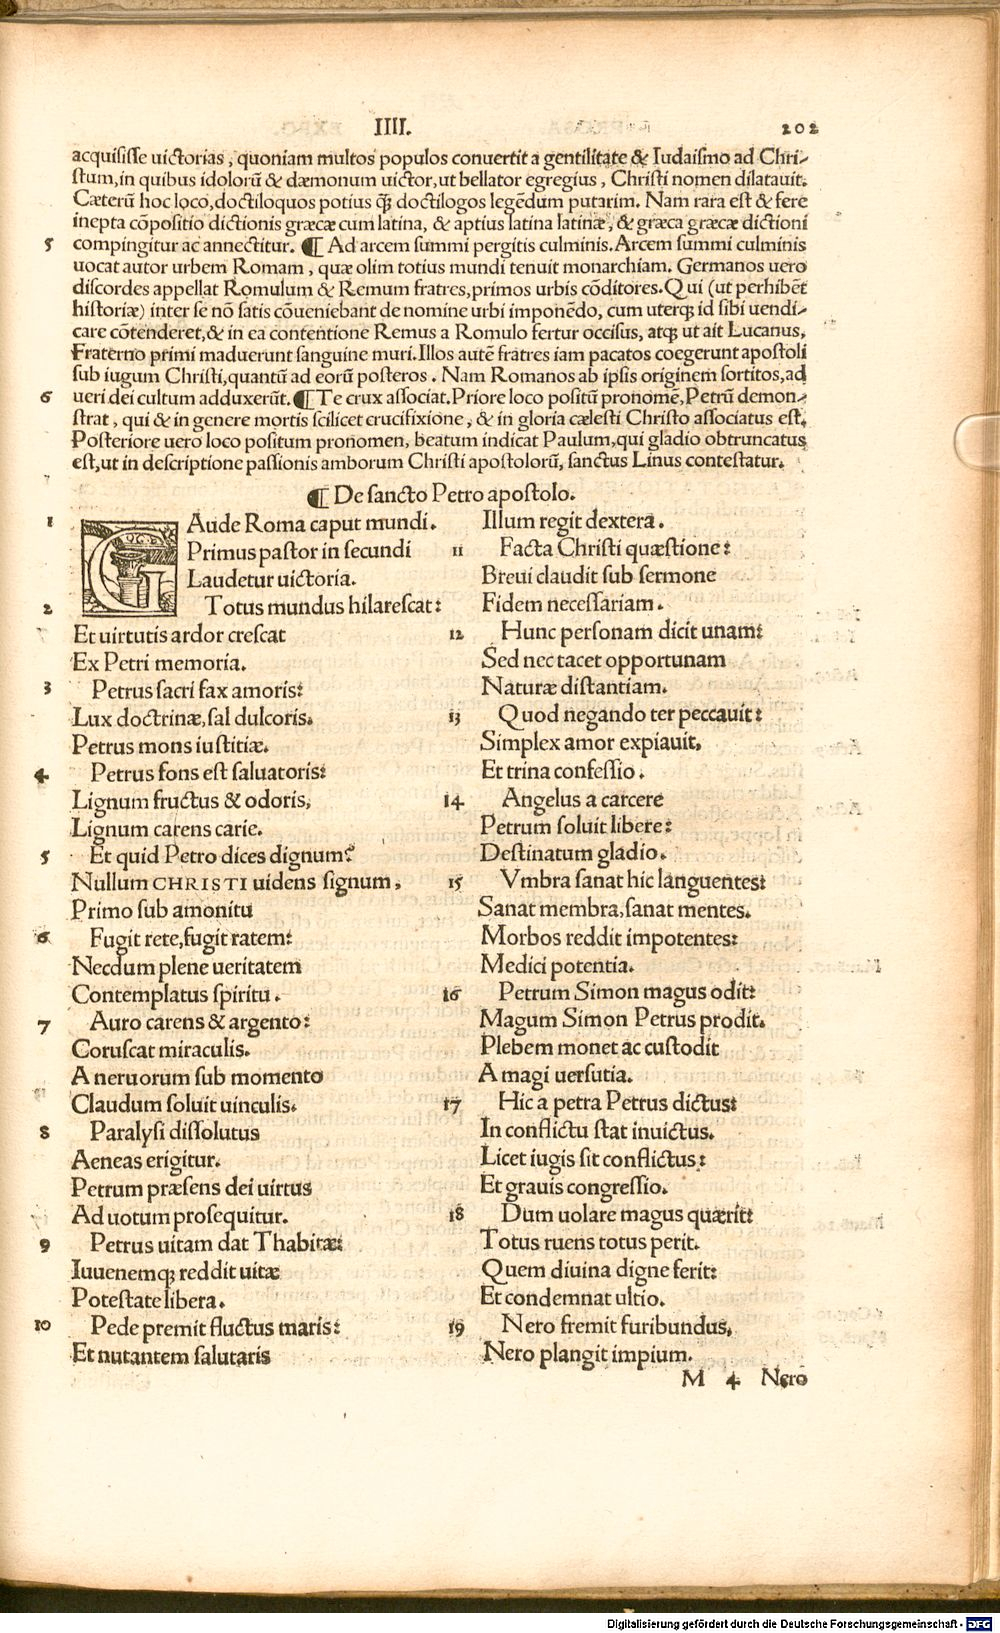 IIII. 202
acquisisse uictorias, quoniam multos populos conuertit a gentilitate & Iudaismo ad Chri-
stum, in quibus idolorū & dæmonum uictor, ut bellator egregius, Christi nomen dilatauit.
Cæterū hoc loco, doctiloquos potius q̃ȝ doctilogos legēdum putarim. Nam rara est & fere
inepta cōpositio dictionis græcæ cum latina, & aptius latina latinæ, & græca græcæ dictioni
5 compingitur ac annectitur. ¶ Ad arcem summi pergitis culminis. Arcem summi culminis
uocat autor urbem Romam, quæ olim totius mundi tenuit monarchiam. Germanos uero
discordes appellat Romulum & Remum fratres, primos urbis cōditores. Qui (ut perhibēt
historiæ) inter se nō satis cōueniebant de nomine urbi imponēdo, cum uterqȝ id sibi uendi-
care cōtenderet, & in ea contentione Remus a Romulo fertur occisus, atqȝ ut ait Lucanus,
Fraterno primi maduerunt sanguine muri. Illos autē fratres iam pacatos coegerunt apostoli
sub iugum Christi, quantū ad eorū posteros. Nam Romanos ab ipsis originem sortitos, ad
6 ueri dei cultum adduxerūt. ¶ Te crux associat. Priore loco positū pronomē, Petrū demon-
strat, qui & in genere mortis scilicet crucifixione, & in gloria cælesti Christo associatus est.
Posteriore uero loco positum pronomen, beatum indicat Paulum, qui gladio obtruncatus
est, ut in descriptione passionis amborum Christi apostolorū, sanctus Linus contestatur.
¶ De sancto Petro apostolo.
1 GAude Roma caput mundi.
Primus pastor in secundi
Laudetur uictoria.
2 Totus mundus hilarescat:
Et uirtutis ardor crescat
Ex Petri memoria.
3 Petrus sacri fax amoris:
Lux doctrinæ, sal dulcoris.
Petrus mons iustitiæ.
4 Petrus fons est saluatoris:
Lignum fructus & odoris,
Lignum carens carie.
5 Et quid Petro dices dignum?
Nullum CHRISTI uidens signum,
Primo sub amonitu
6 Fugit rete, fugit ratem:
Necdum plene ueritatem
Contemplatus spiritu.
7 Auro carens & argento:
Coruscat miraculis.
A neruorum sub momento
Claudum soluit uinculis.
8 Paralysi dissolutus
Aeneas erigitur.
Petrum præsens dei uirtus
Ad uotum prosequitur.
9 Petrus uitam dat Thabitæ:
Iuuenemqȝ reddit uitæ
Potestate libera.
10 Pede premit fluctus maris:
Et nutantem salutaris
Illum regit dextera.
11 Facta Christi quæstione:
Breui claudit sub sermone
Fidem necessariam.
12 Hunc personam dicit unam:
Sed nec tacet opportunam
Naturæ distantiam.
13 Quod negando ter peccauit:
Simplex amor expiauit,
Et trina confessio.
14 Angelus a carcere
Petrum soluit libere:
Destinatum gladio.
15 Vmbra sanat hic languentes:
Sanat membra, sanat mentes.
Morbos reddit impotentes:
Medici potentia.
16 Petrum Simon magus odit:
Magum Simon Petrus prodit.
Plebem monet ac custodit
A magi uersutia.
17 Hic a petra Petrus dictus:
In conflictu stat inuictus.
Licet iugis sit conflictus:
Et grauis congressio.
18 Dum uolare magus quærit:
Totus ruens totus perit.
Quem diuina digne ferit:
Et condemnat ultio.
19 Nero fremit furibundus,
Nero plangit impium.
M 4 Nero
Digitalisierung gefördert durch die Deutsche Forschungsgemeinschaft - DFG